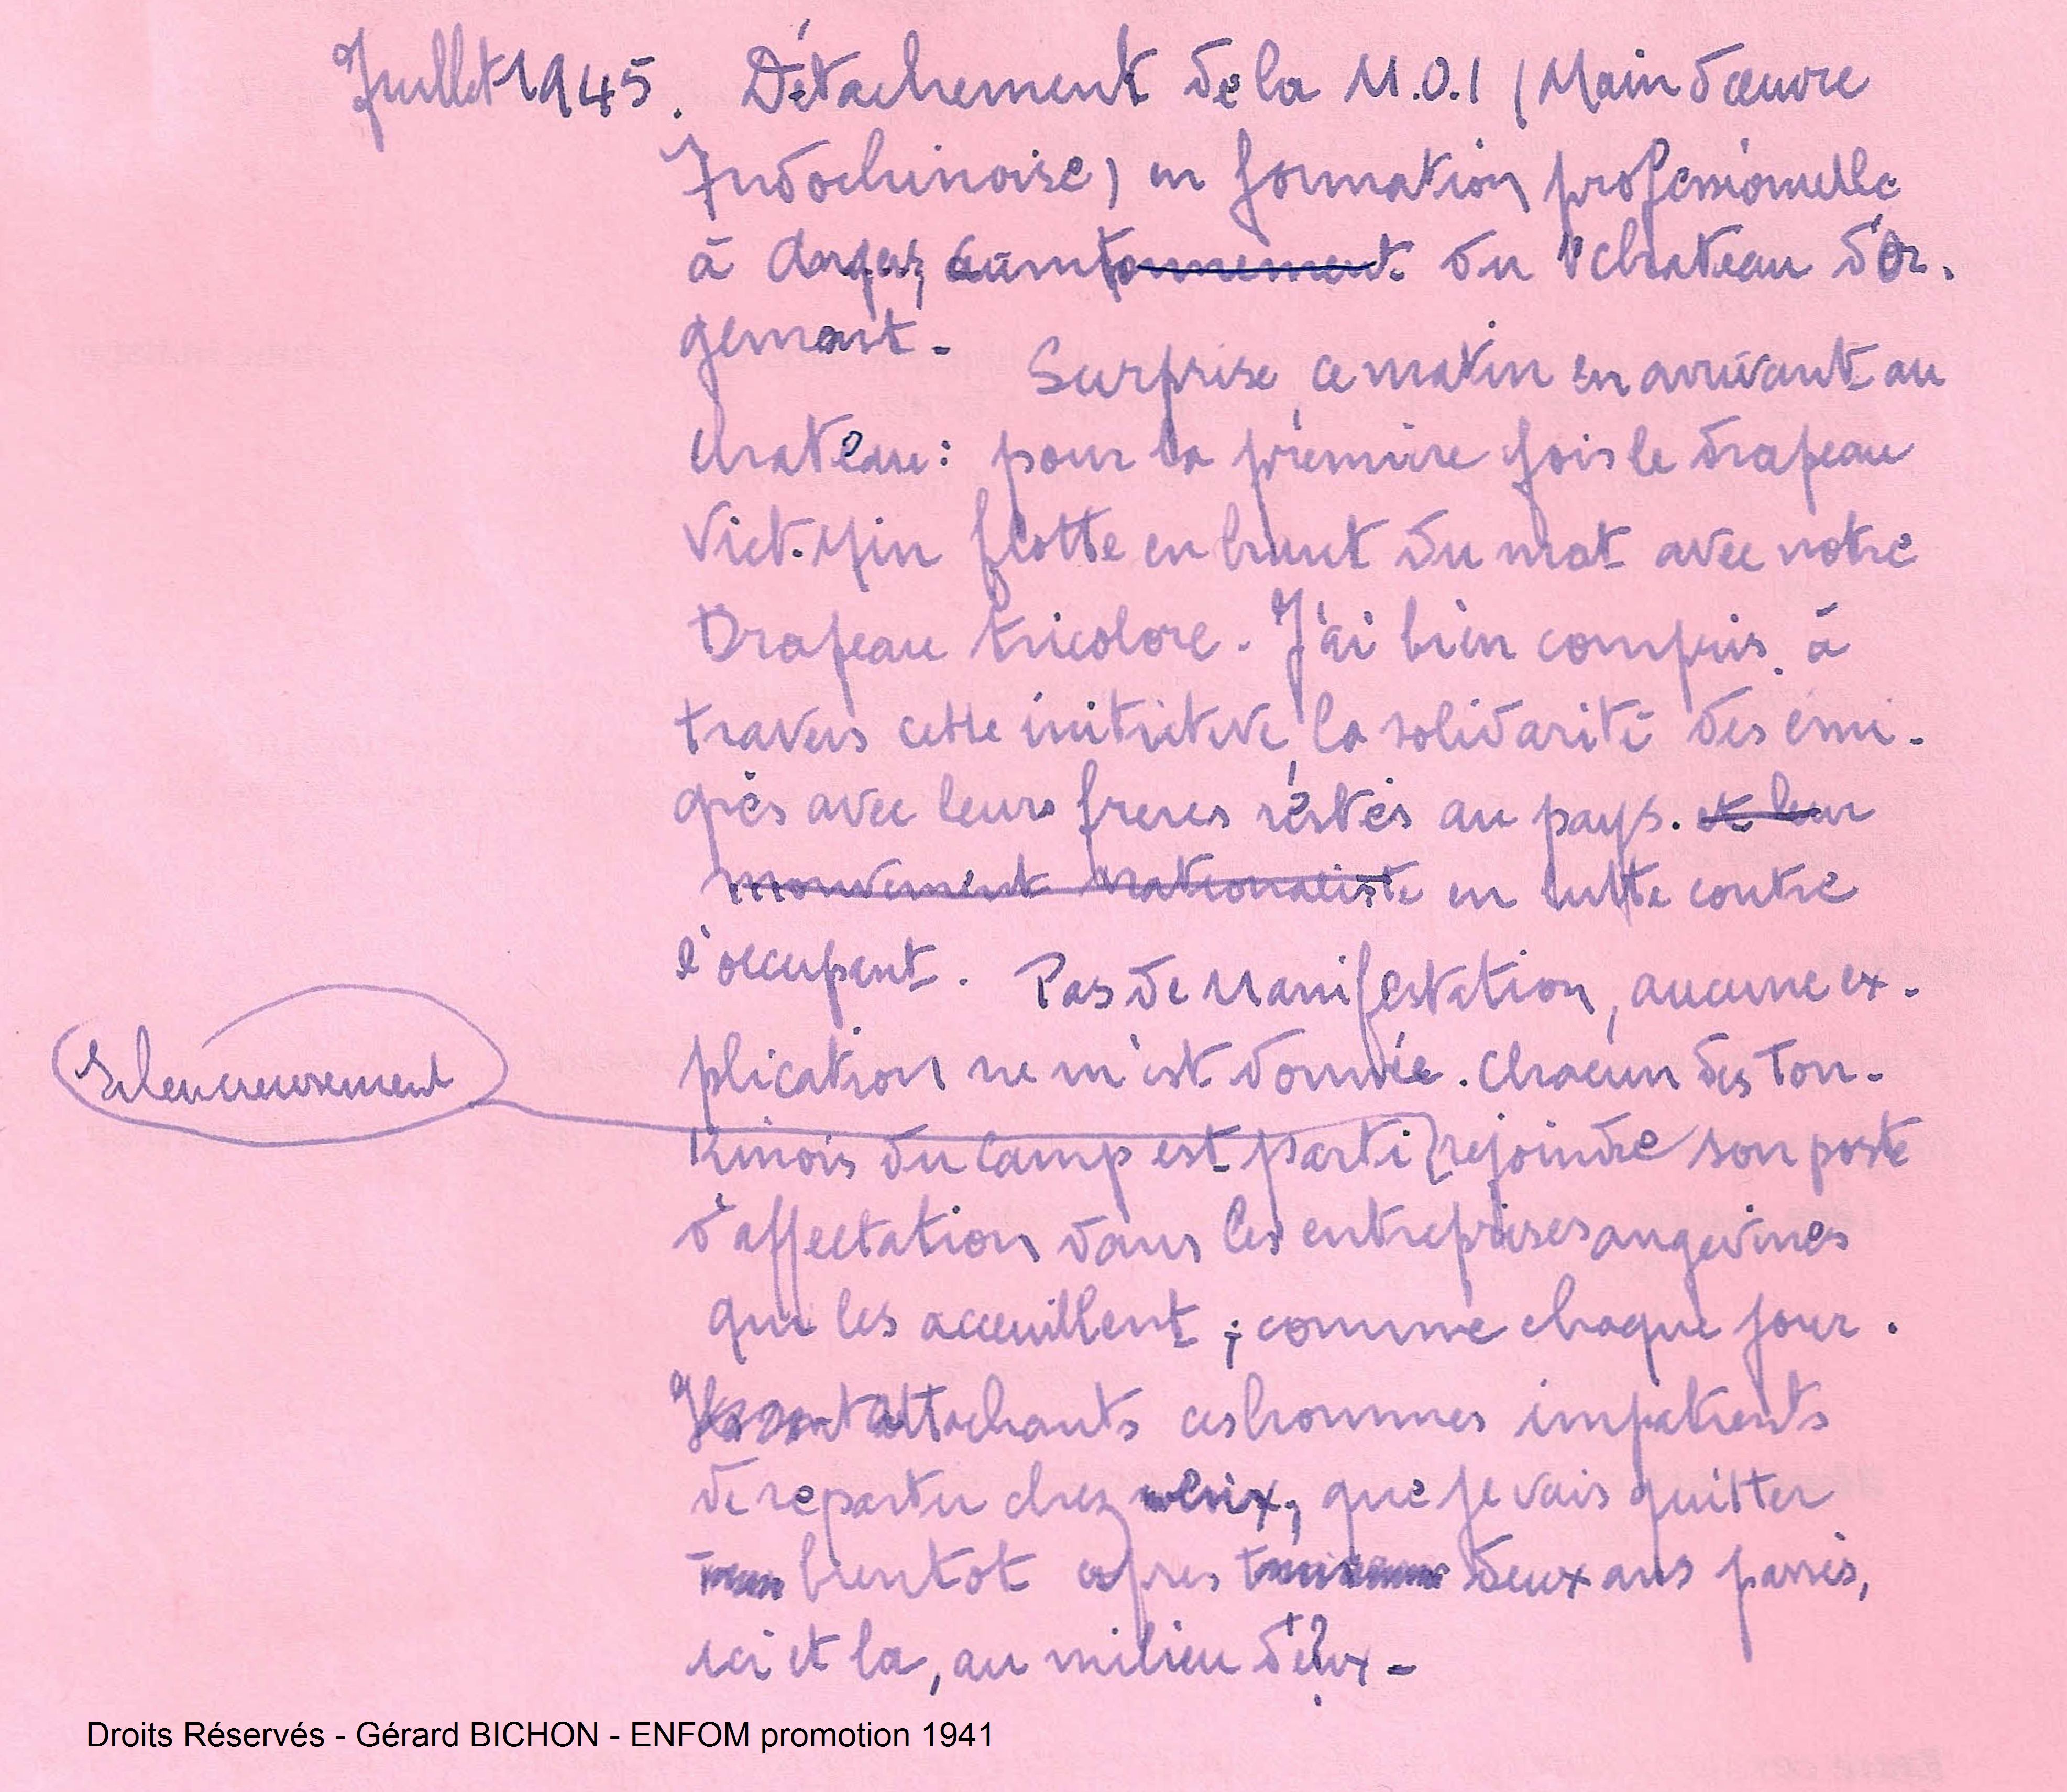 Juillet 1945. Détachement de la M.O.I (Main d'œuvre
Indochinoise) en formation professionnelle
à Angers, cantonnement du "chateau d'Or-
gemont.
Surprise, ce matin en arrivant au
chateau: pour la première fois le drapeau
Viet-Min flotte en haut du mat avec notre
Drapeau tricolore. J'ai bien compris, à
travers cette initiative, la solidarité des émi-
grés avec leurs freres réstés au pays. et leur
mouvement nationaliste en lutte contre
l'occupant. Pas de Manifestation, aucune ex-
plication ne m'est donnée. Chacun des Ton-
Silencieusement
kinois du Camp est parti rejoindre son poste
d'affectation dans les entreprises angevines
qui les acceuillent ; comme chaque jour.
Ils sont attachants ces hommes impatients
de repartir chez eux, que je vais quitter
bientot apres deux ans passés,
ici et la, au milieu d'eux -
Droits Réservés - Gérard BICHON - ENFOM promotion 1941